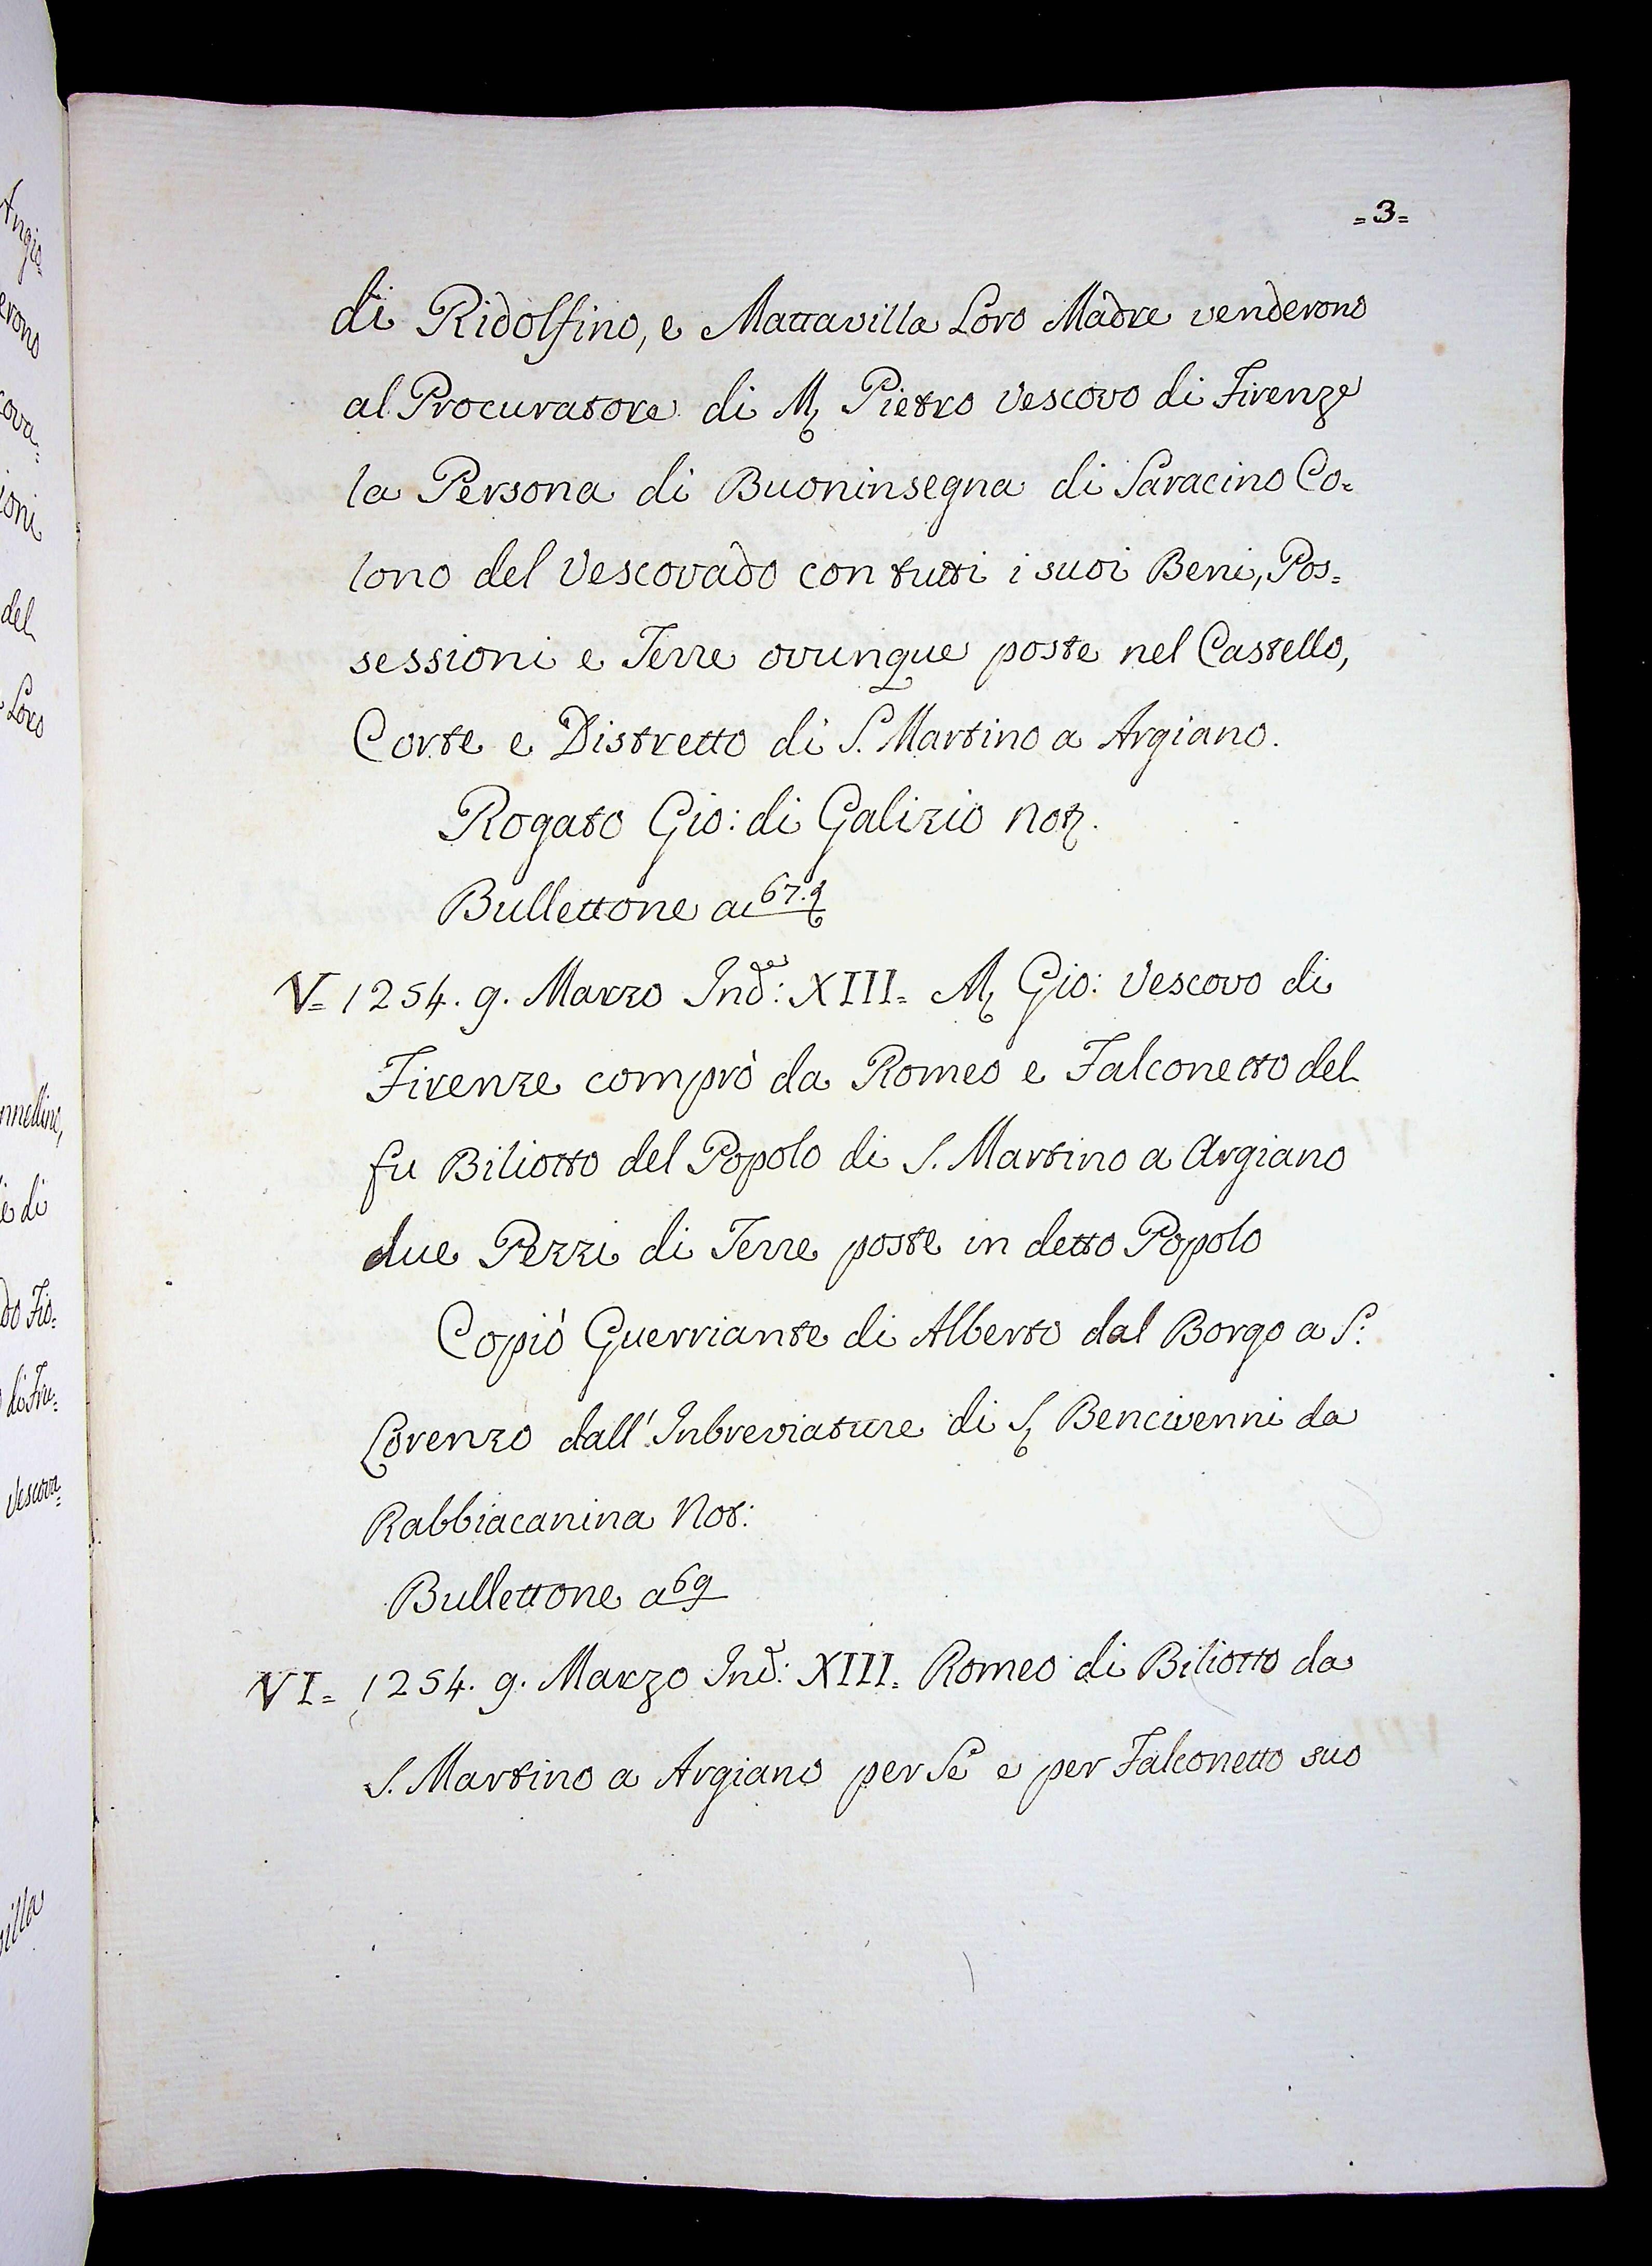 =3=
di Ridolfino, e Mattavilla Loro Madre venderono
al Procuratore di M. Pietro Vescovo di Firenze
la Persona di Buoninsegna di Saracino Co=
lono del Vescovado con tutti i suoi Beni, Pos=
sessioni e Terre ovunque poste nel Castello,
Corte e Distretto di S. Martino a Argiano.
Rogato Gio: di Galizio Not.
Bullettone a 67.
V= 1254. 9. Marzo Ind: XIII= M. Gio: Vescovo di
Firenze comprò da Romeo e Falconetto del
fu Biliotto del Popolo di S. Martino a Argiano
due Pezzi di Terre poste in detto Popolo
Copiò Guerriante di Alberto dal Borgo a S:
Lorenzo dall'Inbreviature di S. Bencivenni da
Rabbiacanina Not:
Bullettone a 69
VI= 1254. 9. Marzo Ind: XIII= Romeo di Biliotto da
S. Martino a Argiano per Se e per Falconetto suo